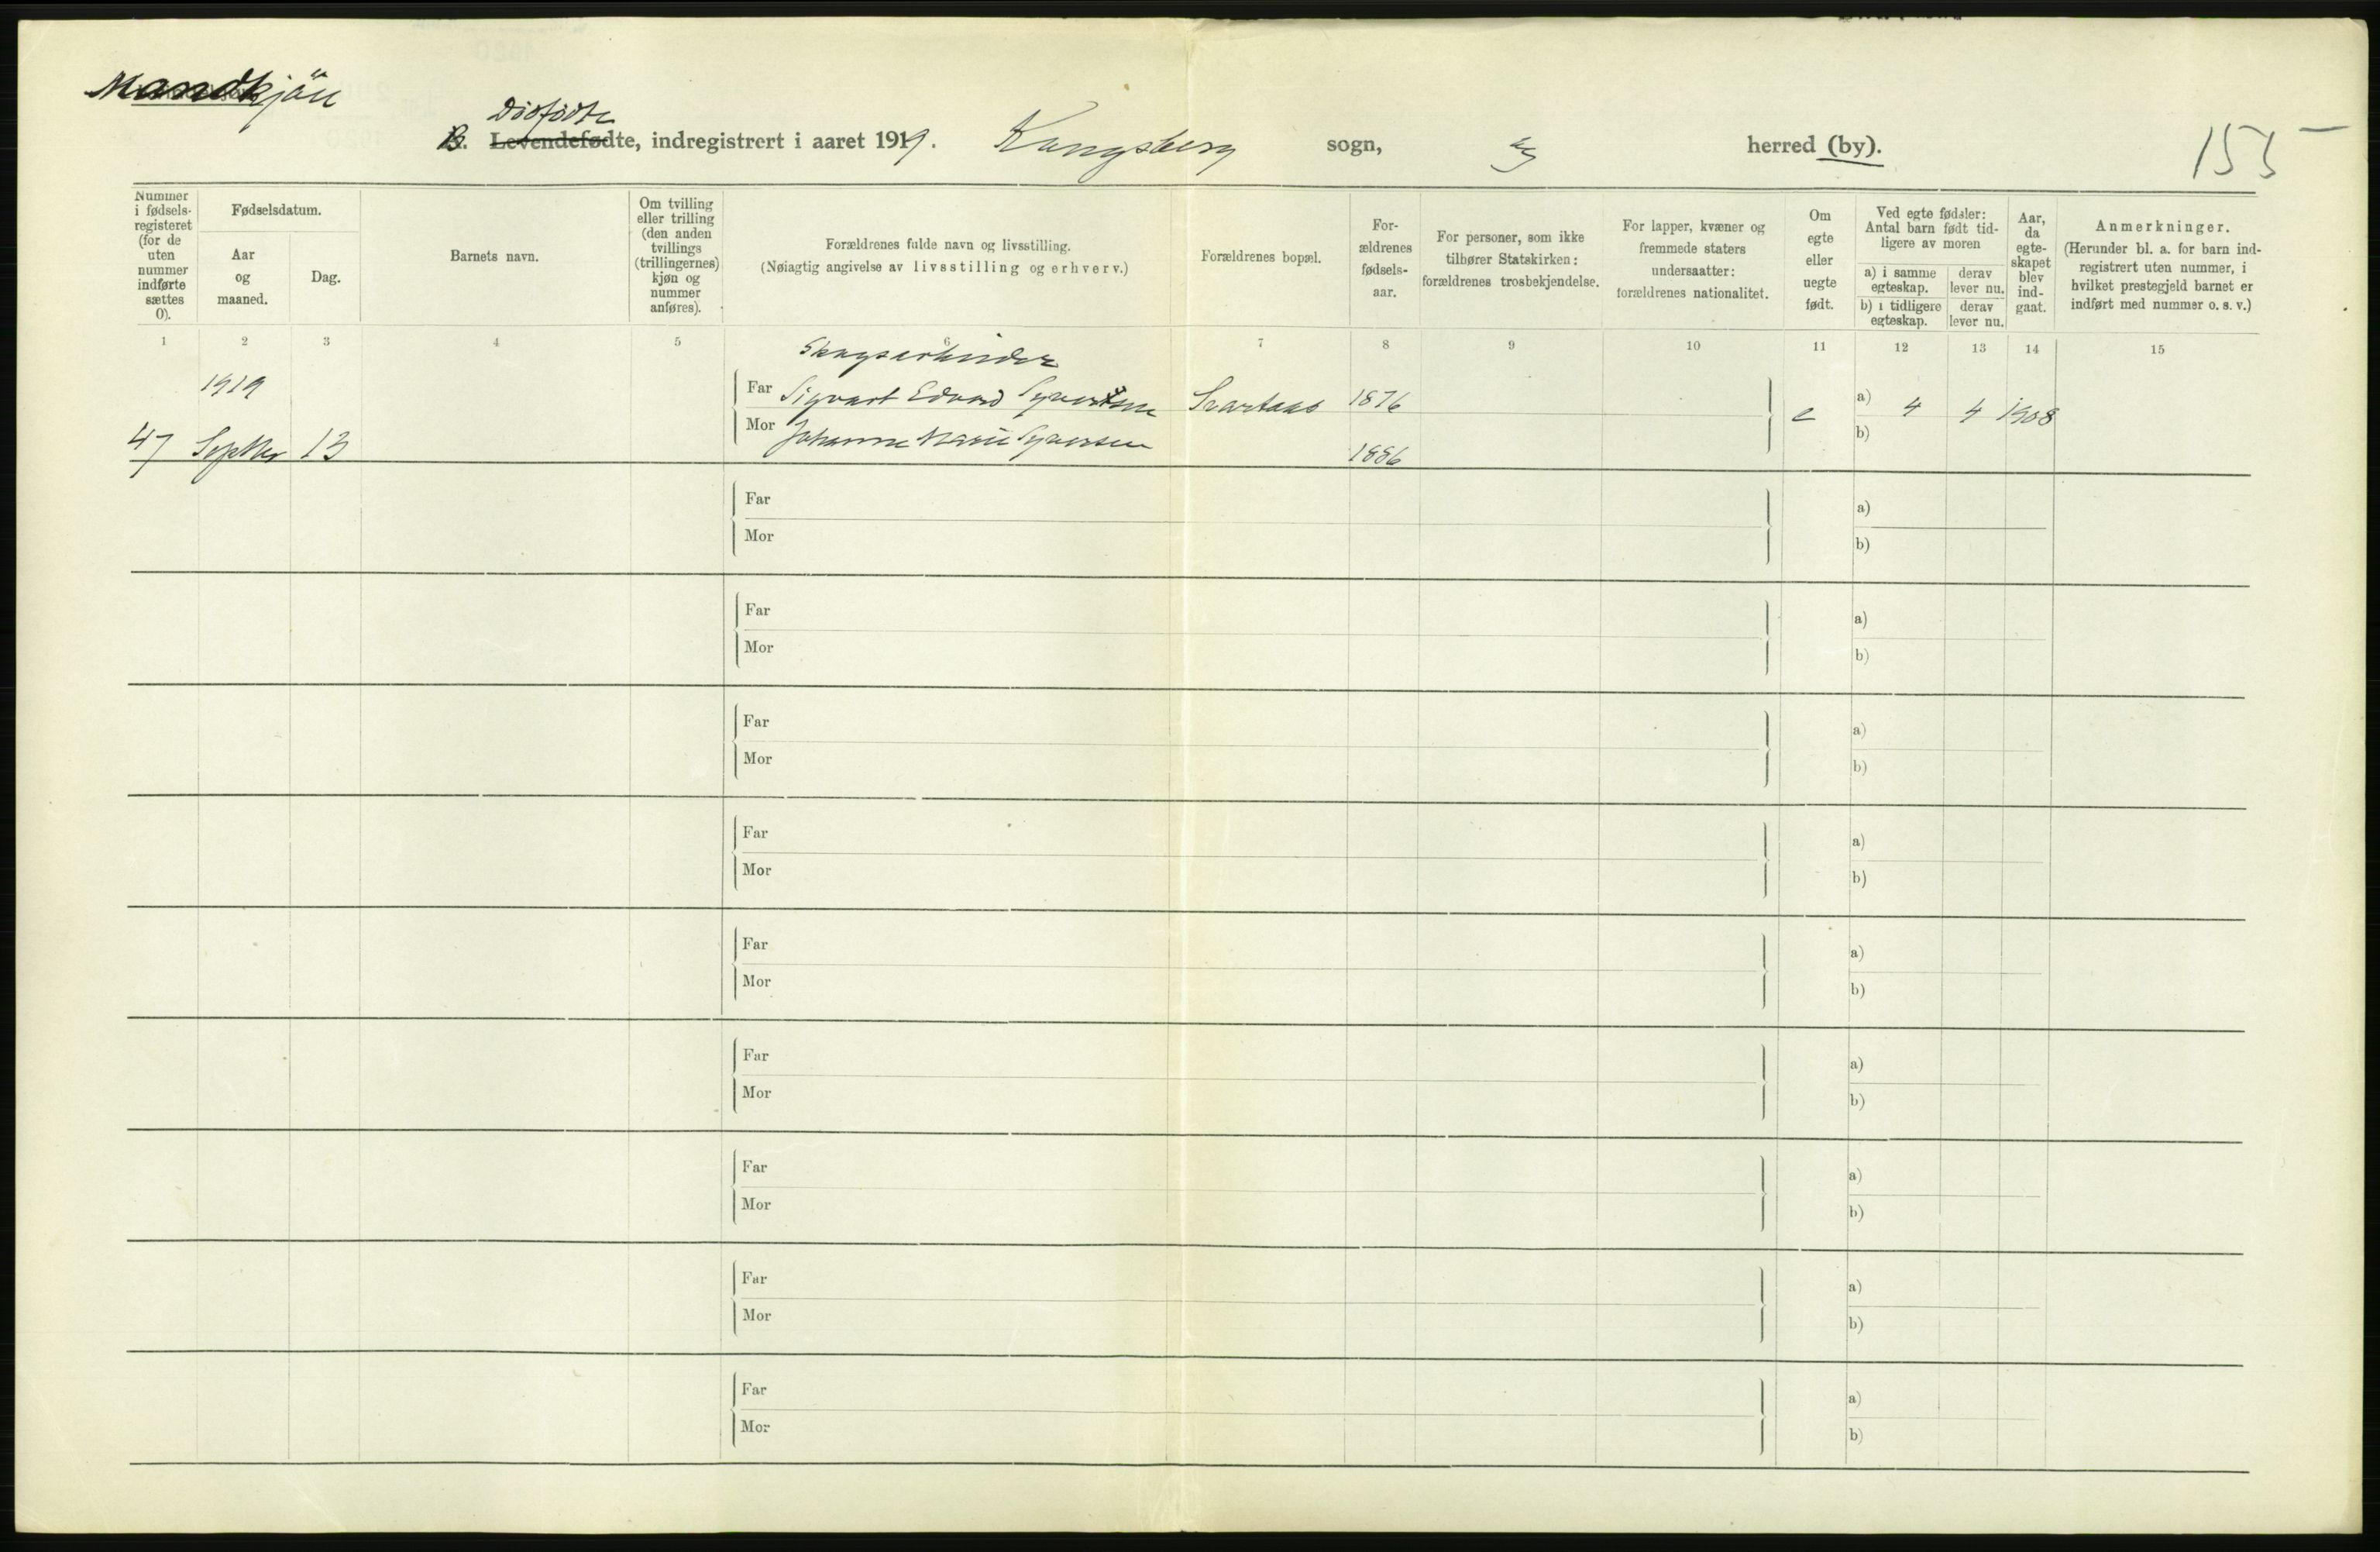 Mandkjön
Dödfödte
B. Levendefødte, indregistrert i aaret 1919. Kongsberg sogn, herred (by). 155
Nummer i fødsels-registeret (for de uten nummer indførte sættes 0).
Fødselsdatum.
Aar og maaned.
Dag.
Barnets navn.
Om tvilling eller trilling (den anden tvillings (trillingernes) kjøn og nummer anføres).
Forældrenes fulde navn og livsstilling.
(Nøiagtig angivelse av livsstilling og erhverv.)
Forældrenes bopæl.
For-ældrenes fødsels-aar.
For personer, som ikke tilhører Statskirken: forældrenes trosbekjendelse.
For lapper, kvæner og fremmede staters undersaatter: forældrenes nationalitet.
Om egte eller uegte født.
Ved egte fødsler: Antal barn født tid-ligere av moren
a) i samme egteskap.
derav lever nu.
b) i tidligere egteskap.
derav lever nu.
Aar, da egte-skapet blev ind-gaat.
Anmerkninger.
(Herunder bl. a. for barn ind-registrert uten nummer, i hvilket prestegjeld barnet er indført med nummer o. s. v.)
1 2 3 4 5 6 7 8 9 10 11 12 13 14 15
Skogsarbeider
1919 Far Sigvart Edvard Syvertsen 1876
e a) 4 4 1908
47 Septbr 13 Mor Johanne Marie Syvertsen 1886
b)
Far a)
Mor b)
Far a)
Mor b)
Far a)
Mor b)
Far a)
Mor b)
Far a)
Mor b)
Far a)
Mor b)
Far a)
Mor b)
Far a)
Mor b)
Far a)
Mor b)